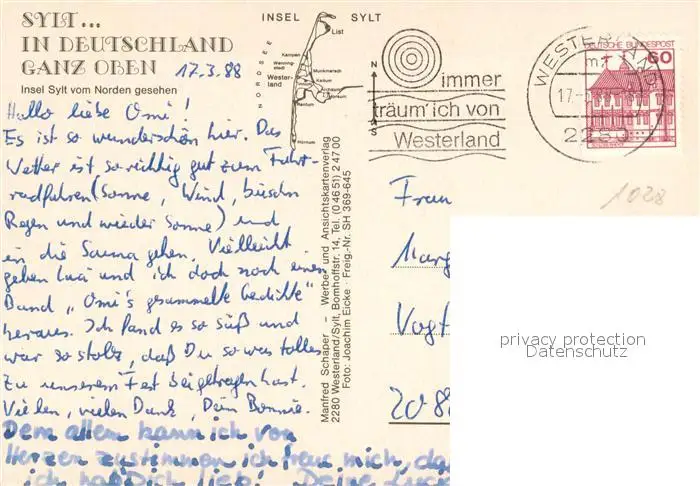 SYLT...
IN DEUTSCHLAND
GANZ OBEN
Insel Sylt vom Norden gesehen
17.3.88
INSEL SYLT
NORDSEE
List
Kampen
Westerland
N
S
immer
träum' ich von
Westerland
WESTERLAND
2280
DEUTSCHE BUNDESPOST
60
1028
Hallo liebe Omi!
Es ist so wunderschön hier. Das
Wetter ist so richtig gut zum Fahr-
radfahren (Sonne, Wind, bisschen
Regen und wieder Sonne) und
in die Sauna gehen. Vielleicht
geben Luci und ich doch noch einen
Band „Omi's gesammelte Gedichte"
heraus. Ich fand es so süß und
war so stolz, daß Du so was tolles
zu unserem Fest beigetragen hast.
Vielen, vielen Dank, Dein Bonnie.
Dem allem kann ich von
Herzen zustimmen ich freu mich, das
ich hab Dich lieb! Deine Luci
Manfred Schaper – Werbe- und Ansichtskartenverlag
2280 Westerland/Sylt, Bomhoffstr. 14, Tel. (0 46 51) 2 47 00
Foto: Joachim Eicke · Freig.-Nr. SH 369-645
Frau
Marg
Vogt
208
privacy protection
Datenschutz